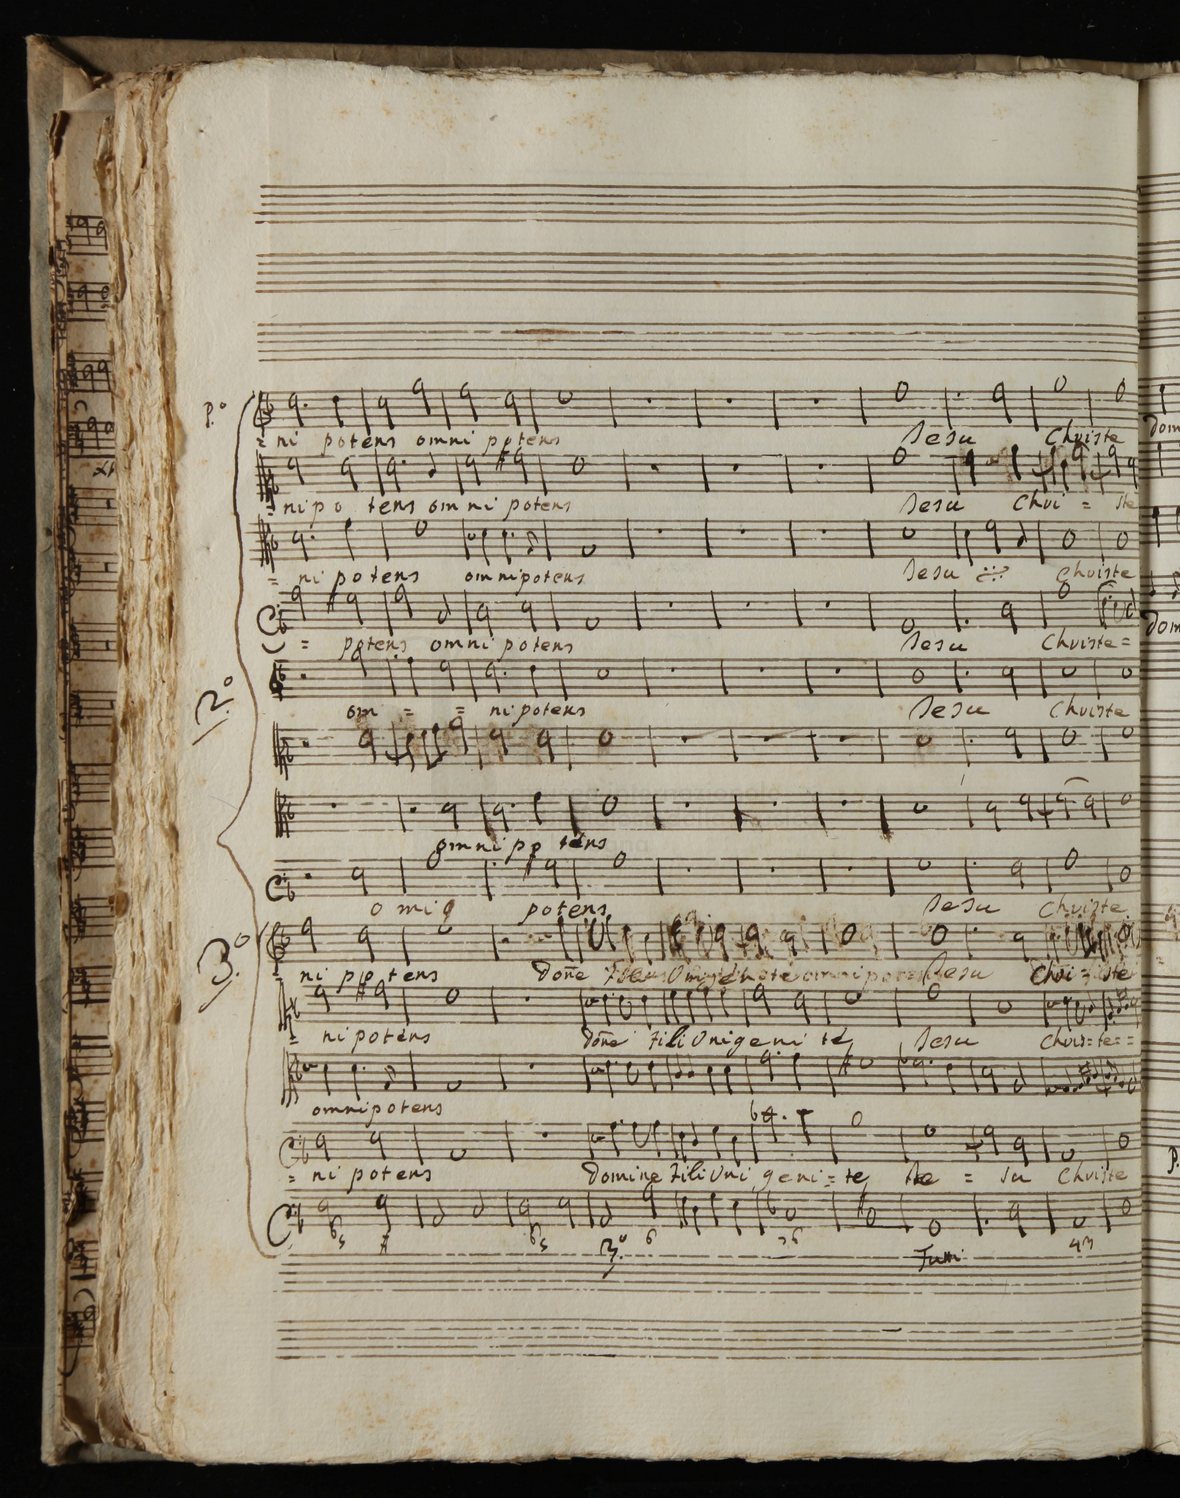 P.º
= ni potens omni potens Jesu Christe
= nipo tens omni potens Jesu Chri = ste
= ni potens omnipotens Jesu Christe
= potens omni potens Jesu Christe =
2.º
om = = nipotens Jesu Christe
omnipo tens
potens Jesu Christe
3.º
= ni po tens Dоñe Jesu Chri = ste
= nipotens Dоñe fili Unigeni te Jesu Chris = te = =
omnipotens
= ni potens Domine fili Uni geni = te Je = su Christe
3.º 6
Tutti
43